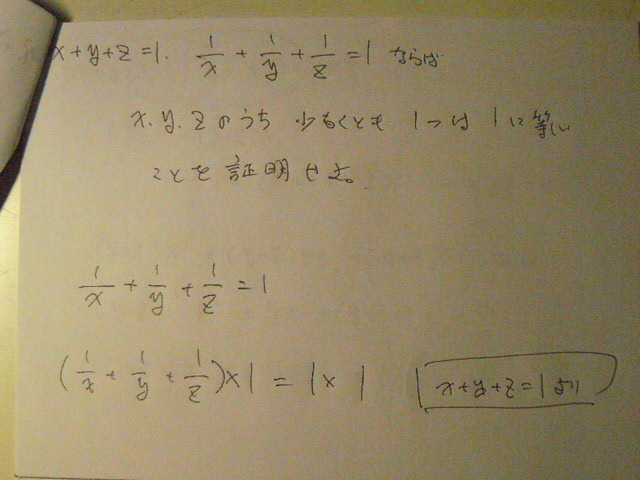 x+y+z=1. 1/x + 1/y + 1/z = 1 ならば
x.y.zのうち 少なくとも 1つは 1に等しい
ことを証明せよ。
1/x + 1/y + 1/z = 1
(1/x + 1/y + 1/z)×1 = 1×1 x+y+z=1より